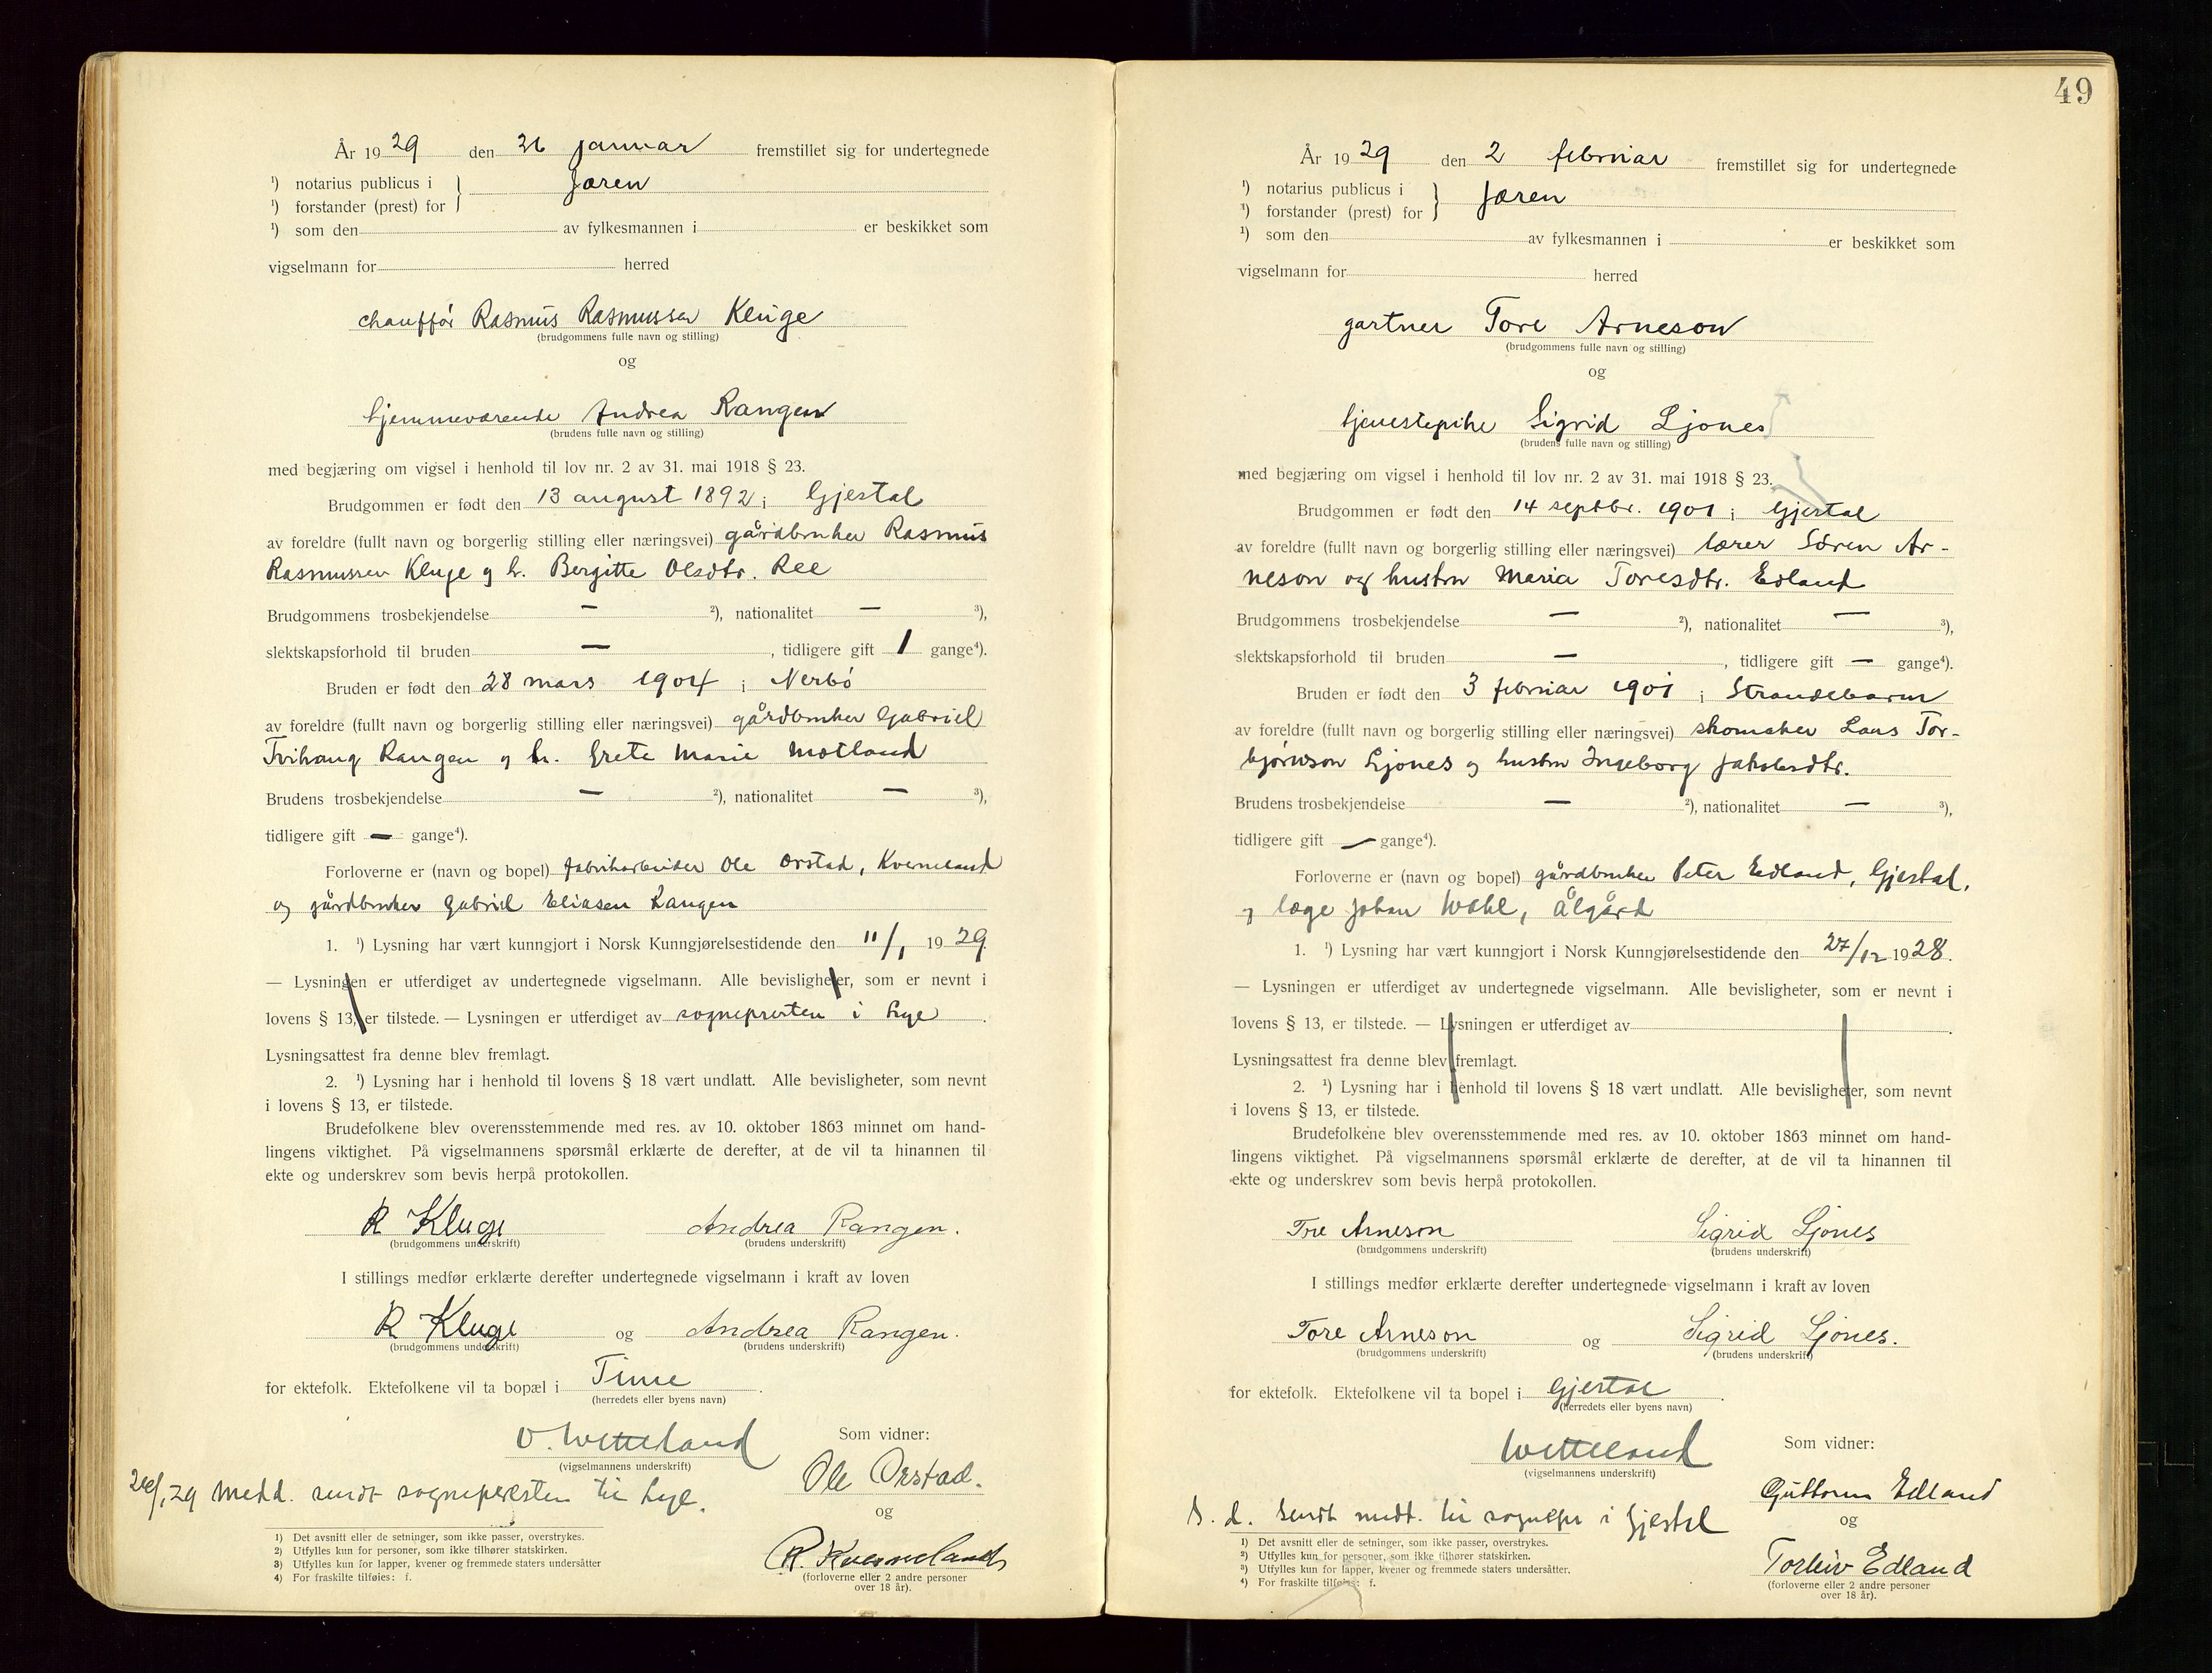 År 1929 den 26 januar fremstillet sig for undertegnede
¹) notarius publicus i } Jæren
¹) forstander (prest) for
¹) som den av fylkesmannen i er beskikket som
vigselmann for herred
chauffør Rasmus Rasmussen Kluge
(brudgommens fulle navn og stilling)
og
hjemmeværende Andrea Rangen
(brudens fulle navn og stilling)
med begjæring om vigsel i henhold til lov nr. 2 av 31. mai 1918 § 23.
Brudgommen er født den 13 august 1892 i Gjestal
av foreldre (fullt navn og borgerlig stilling eller næringsvei) gårdbruker Rasmus
Rasmussen Kluge og h. Bergitte Olsdtr. Ree
Brudgommens trosbekjendelse — ²), nationalitet — ³),
slektskapsforhold til bruden — , tidligere gift 1 gange⁴).
Bruden er født den 28 mars 1904 i Nerbø
av foreldre (fullt navn og borgerlig stilling eller næringsvei) gårdbruker Gabriel
Rangen og h. Grete Marie Motland
Brudens trosbekjendelse — ²), nationalitet — ³),
tidligere gift — gange⁴).
Forloverne er (navn og bopel) fabrikarbeider Ole Orstad, Kverneland
og gårdbruker Gabriel Eliasen Rangen
1. ¹) Lysning har vært kunngjort i Norsk Kunngjørelsestidende den 11/1 1929
— Lysningen er utferdiget av undertegnede vigselmann. Alle bevisligheter, som er nevnt i
lovens § 13, er tilstede. — Lysningen er utferdiget av sognepresten i Lye.
Lysningsattest fra denne blev fremlagt.
2. ¹) Lysning har i henhold til lovens § 18 vært undlatt. Alle bevisligheter, som nevnt
i lovens § 13, er tilstede.
Brudefolkene blev overensstemmende med res. av 10. oktober 1863 minnet om hand-
lingens viktighet. På vigselmannens spørsmål erklærte de derefter, at de vil ta hinannen til
ekte og underskrev som bevis herpå protokollen.
R Kluge Andrea Rangen.
(brudgommens underskrift) (brudens underskrift)
I stillings medfør erklærte derefter undertegnede vigselmann i kraft av loven
R Kluge og Andrea Rangen.
(brudgommens underskrift) (brudens underskrift)
for ektefolk. Ektefolkene vil ta bopæl i Time.
(herredets eller byens navn)
O. Wetteland Som vidner:
(vigselmannens underskrift) Ole Orstad.
26/1 29 Medd. sendt sognepresten til Lye.
og
R. Kverneland
(forloverne eller 2 andre personer
over 18 år).
1) Det avsnitt eller de setninger, som ikke passer, overstrykes.
2) Utfylles kun for personer, som ikke tilhører statskirken.
3) Utfylles kun for lapper, kvener og fremmede staters undersåtter
4) For fraskilte tilføies: f.
49
År 1929 den 2 februar fremstillet sig for undertegnede
¹) notarius publicus i } Jæren
³) forstander (prest) for
¹) som den av fylkesmannen i er beskikket som
vigselmann for herred
gartner Tore Arneson
(brudgommens fulle navn og stilling)
og
tjenestepike Sigrid Ljones
(brudens fulle navn og stilling)
med begjæring om vigsel i henhold til lov nr. 2 av 31. mai 1918 § 23.
Brudgommen er født den 14 septbr. 1901 i Gjestal
av foreldre (fullt navn og borgerlig stilling eller næringsvei) lærer Sören Ar-
neson og hustru Maria Toresdtr. Edland
Brudgommens trosbekjendelse — ²), nationalitet — ³),
slektskapsforhold til bruden — , tidligere gift — gange⁴).
Bruden er født den 3 februar 1901 i Strandebarm
av foreldre (fullt navn og borgerlig stilling eller næringsvei) skomaker Lars Tor-
bjørnson Ljones og hustru Ingeborg Jakobsdtr.
Brudens trosbekjendelse — ²), nationalitet — ³),
tidligere gift — gange⁴).
Forloverne er (navn og bopel) gårdbruker Peter Edland, Gjestal,
og læge Johan Wahl, Ålgård
1. ¹) Lysning har vært kunngjort i Norsk Kunngjørelsestidende den 27/12 1928.
— Lysningen er utferdiget av undertegnede vigselmann. Alle bevisligheter, som er nevnt i
lovens § 13, er tilstede. — Lysningen er utferdiget av .
Lysningsattest fra denne blev fremlagt.
2. ¹) Lysning har i henhold til lovens § 18 vært undlatt. Alle bevisligheter, som nevnt
i lovens § 13, er tilstede.
Brudefolkene blev overensstemmende med res. av 10. oktober 1863 minnet om hand-
lingens viktighet. På vigselmannens spørsmål erklærte de derefter, at de vil ta hinannen til
ekte og underskrev som bevis herpå protokollen.
Tore Arneson Sigrid Ljones
(brudgommens underskrift) (brudens underskrift)
I stillings medfør erklærte derefter undertegnede vigselmann i kraft av loven
Tore Arneson og Sigrid Ljones.
(brudgommens underskrift) (brudens underskrift)
for ektefolk. Ektefolkene vil ta bopel i Gjestal.
(herredets eller byens navn)
Wetteland Som vidner:
(vigselmannens underskrift)
Guttorm Edland
S. d. sendt medd. til sognepr i Gjestal
og
Torleiv Edland
(forloverne eller 2 andre personer
over 18 år).
¹) Det avsnitt eller de setninger, som ikke passer, overstrykes.
²) Utfylles kun for personer, som ikke tilhører statskirken.
³) Utfylles kun for lapper, kvener og fremmede staters undersåtter.
⁴) For fraskilte tilføies: f.